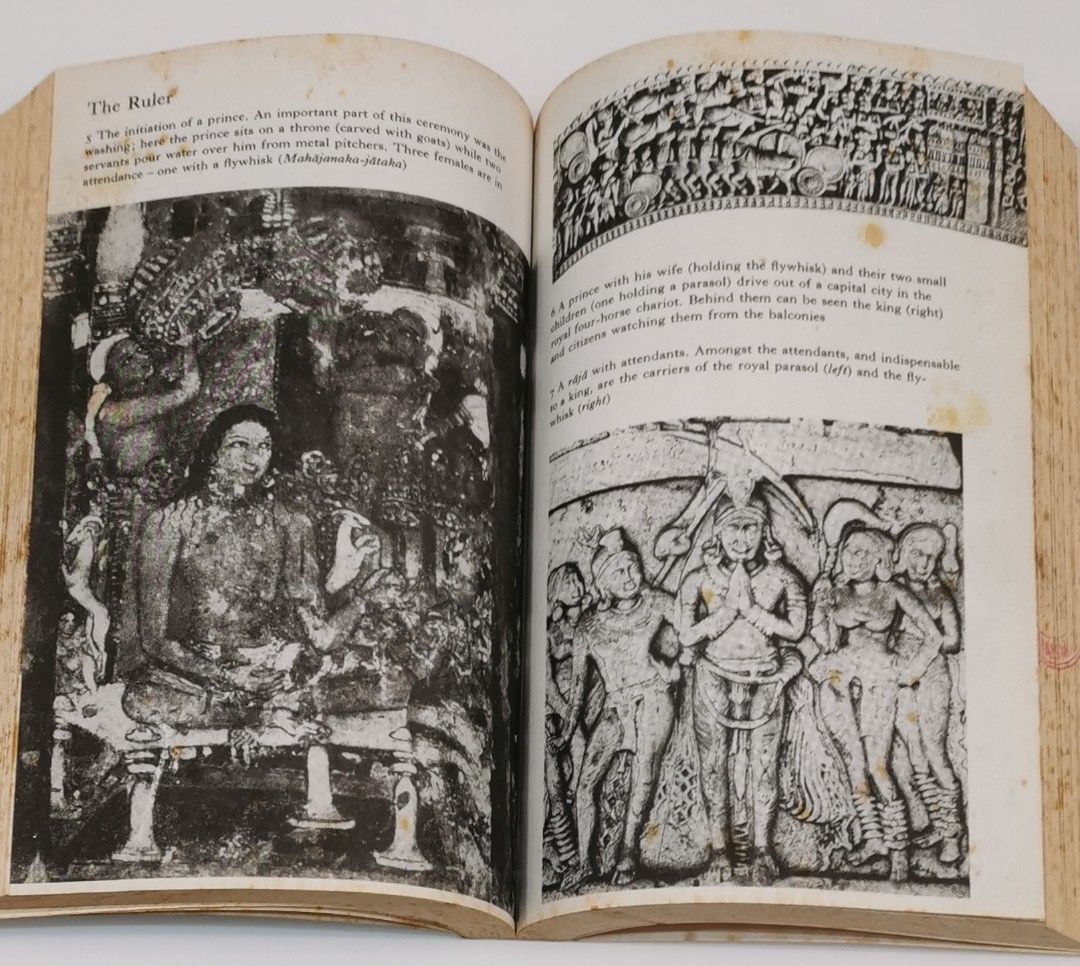 The Ruler
5 The initiation of a prince. An important part of this ceremony was the
washing; here the prince sits on a throne (carved with goats) while two
servants pour water over him from metal pitchers. Three females are in
attendance – one with a flywhisk (Mahājanaka-jātaka)
6 A prince with his wife (holding the flywhisk) and their two small
children (one holding a parasol) drive out of a capital city in the
royal four-horse chariot. Behind them can be seen the king (right)
and citizens watching them from the balconies
7 A rājā with attendants. Amongst the attendants, and indispensable
to a king, are the carriers of the royal parasol (left) and the fly-
whisk (right)